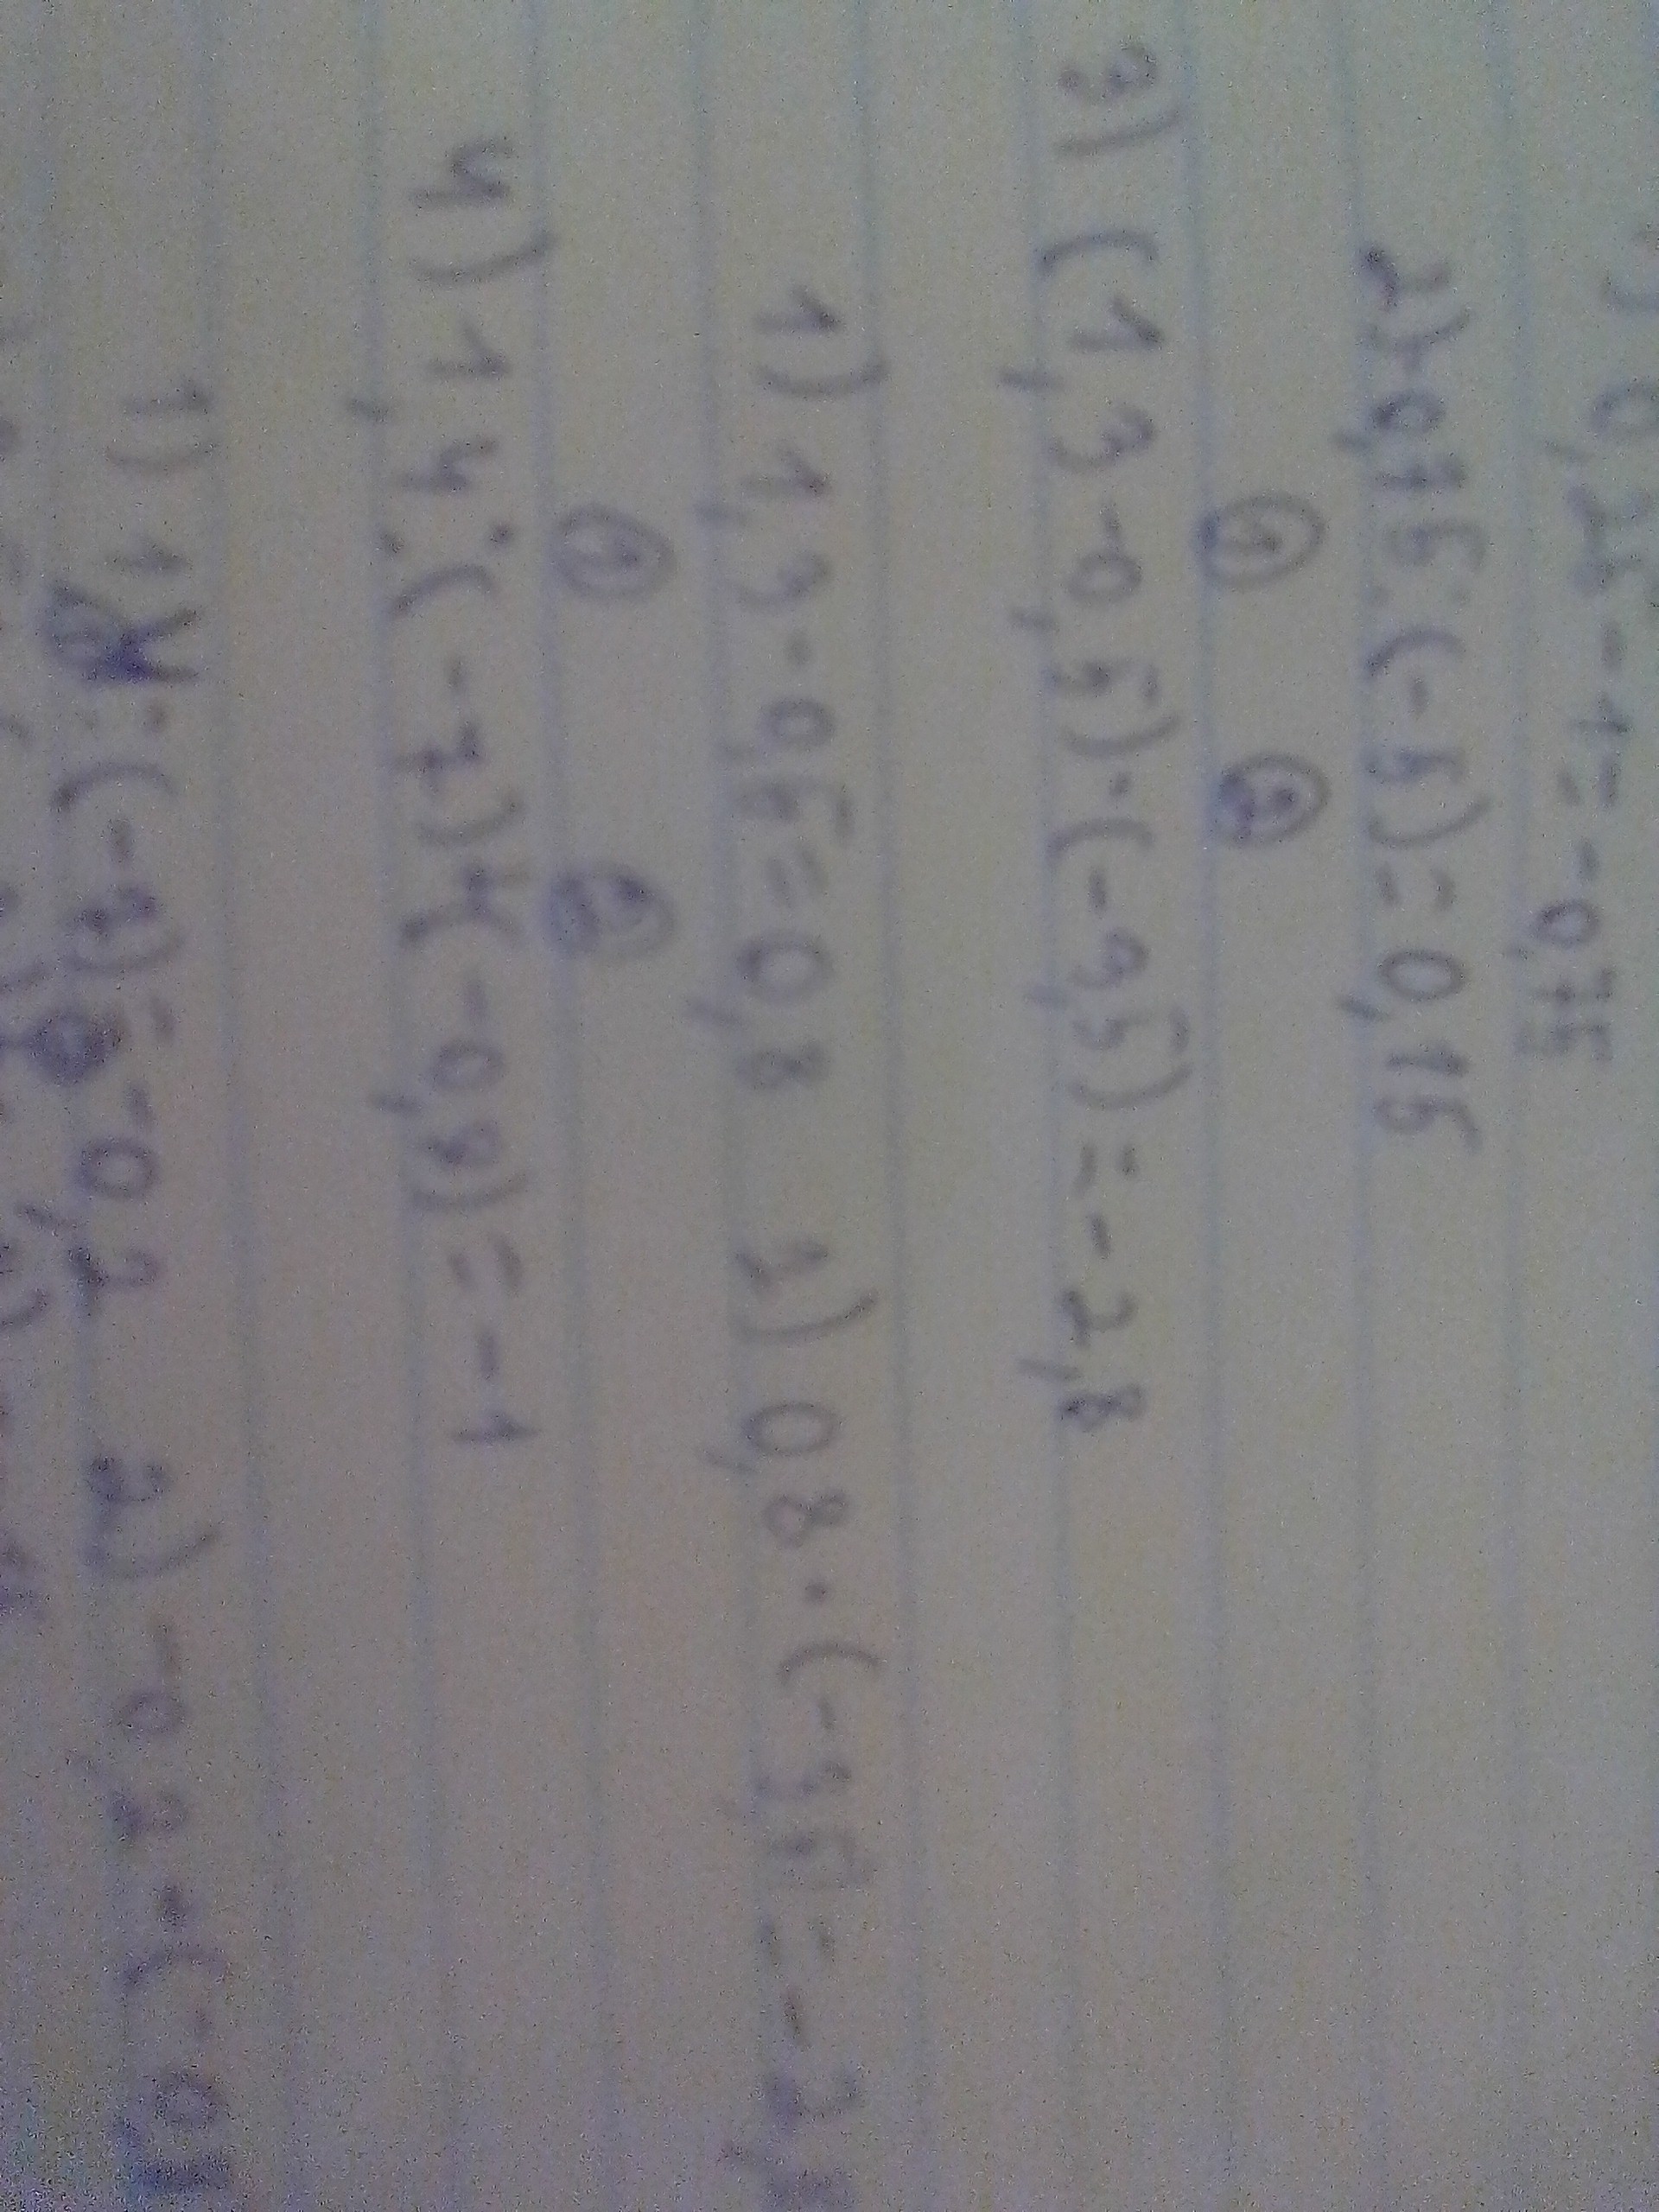 0,25-1=-0,75
2)-0,75:(-5)=0,15
① ②
3) (1,3-0,5)·(-3,5)=-2,8
1) 1,3-0,5=0,8 2) 0,8·(-3,5=-2,
① ②
4) 1,4:(-7)+(-0,8)=-1
1) 1 :(-7)=-0,2 2) -0,2